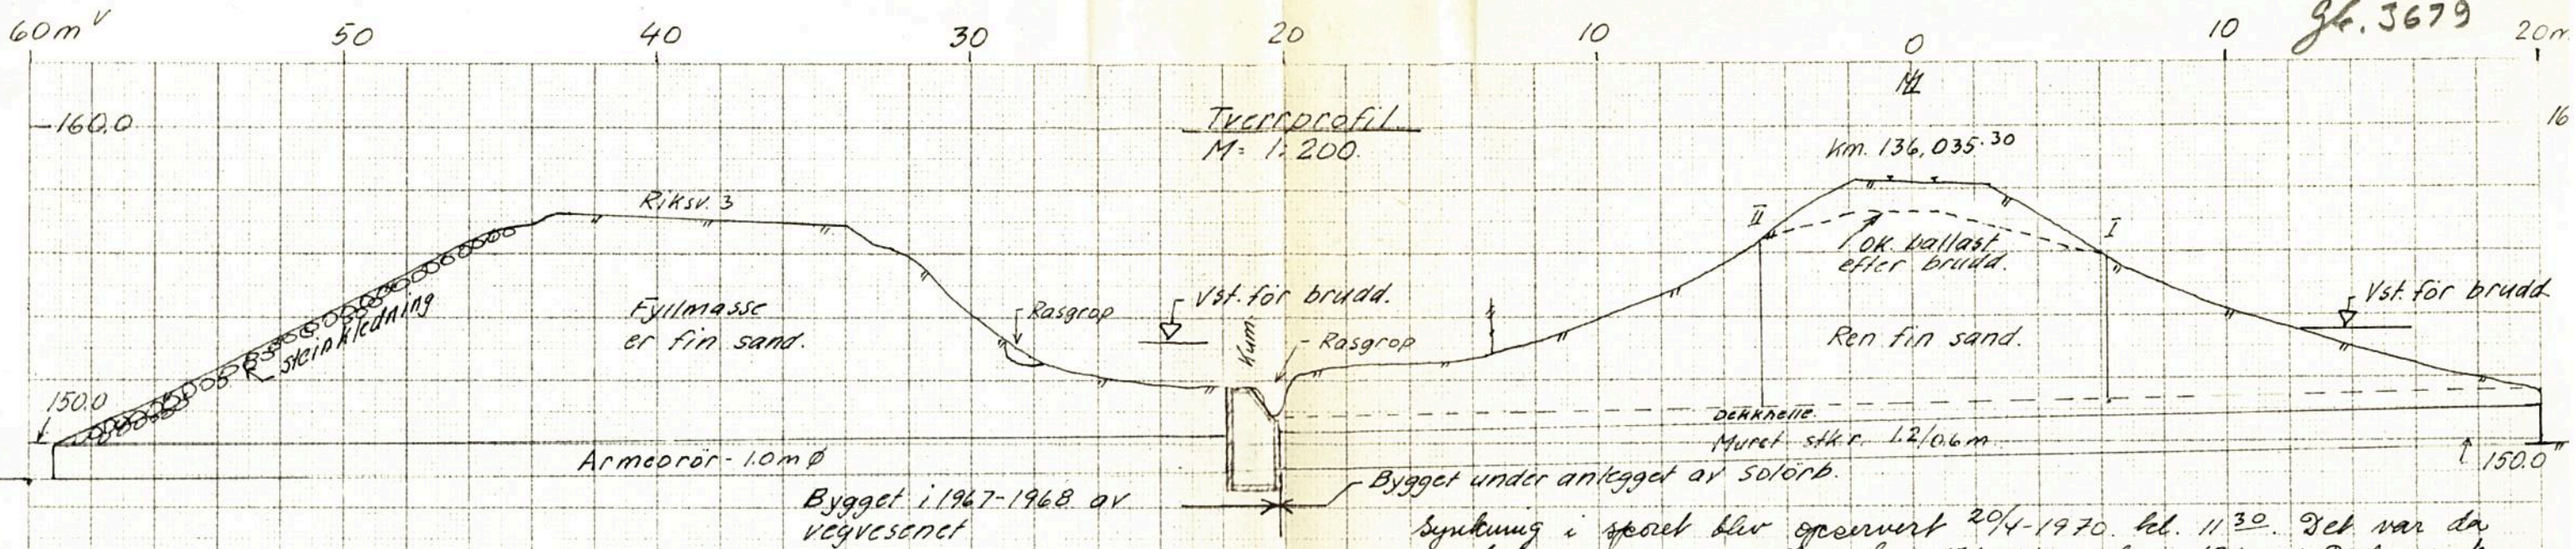 gk. 3679
60m V 50 40 30 20 10 0 10 20m
160.0
16
Tverrprofil
M= 1:200.
Km. 136,035.30
Riksv. 3
II
I
OK. ballast
efter brudd.
Fyllmasse
er fin sand.
steinkledning
Rasgrop
Vst. för brudd.
Kum.
Rasgrop
Ren fin sand.
Vst. för brudd
150.0
Dekkhelle.
Muret stkr. 1.2/0.6m
Armcorör - 1.0m ø
150.0
Bygget i 1967-1968 av
vegvesenet
Bygget under anlegget av Solörb.
Synkning i sporet blev opservert 20/4-1970. kl. 11 30. Det var da